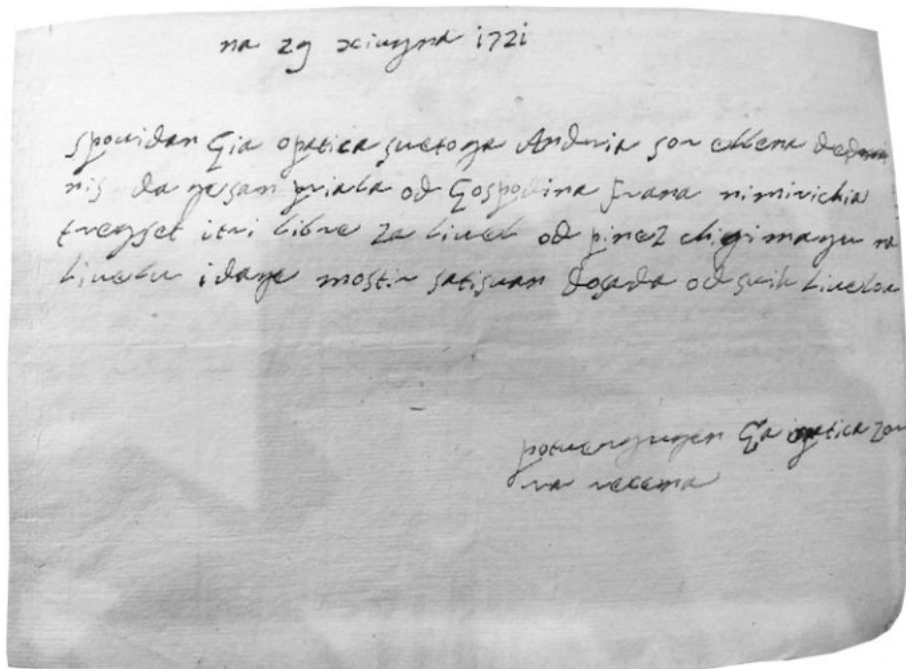 na 29 xiugna 1721
Spouidan Gia opatica suetoga Andria sor ellena dedomi
nis da gesam priala od Gospodina Frana nimirichia
treyset i tri libre za liuel od pinez chigimayu na
liuelu i dage mostir satisuan dosada od suih liuelou
potueryugem Gia opatica zou
ra recena